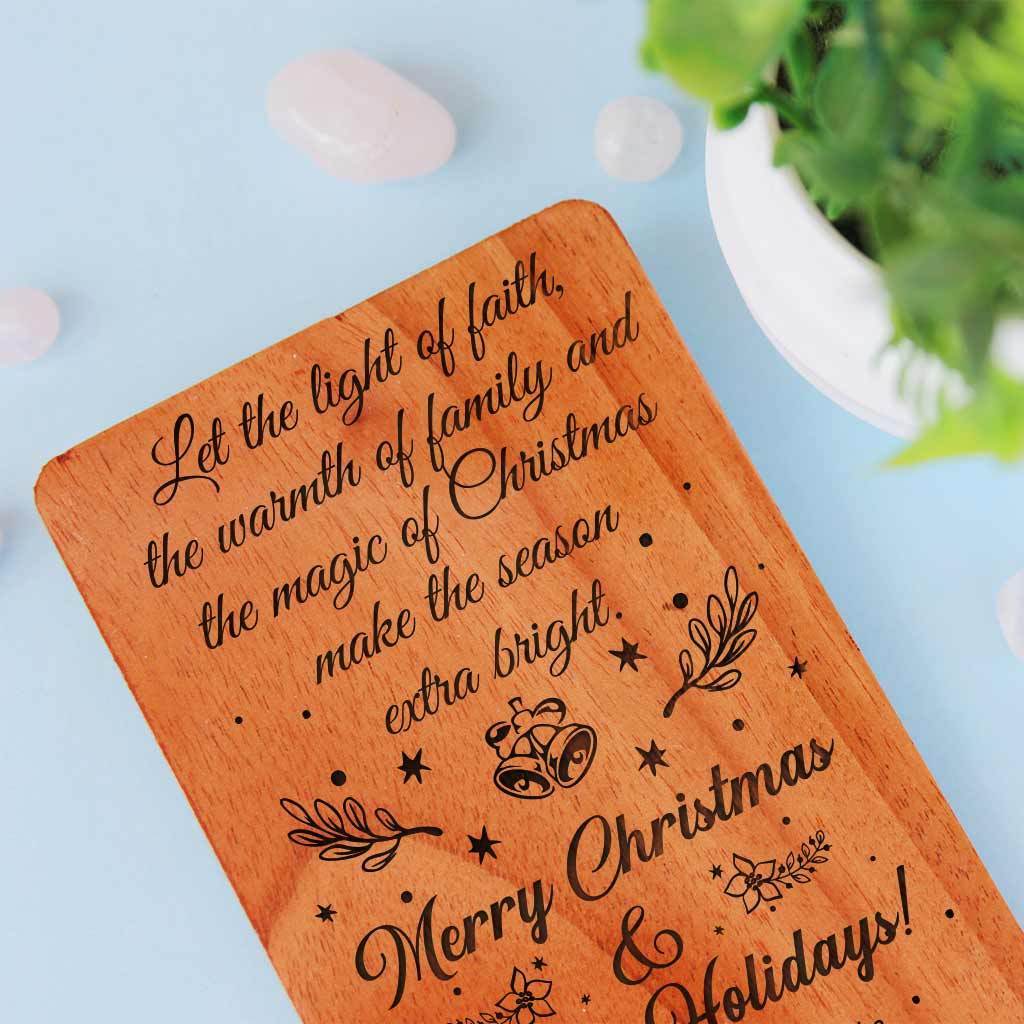 Let the light of faith,
the warmth of family and
the magic of Christmas
make the season
extra bright.
Merry Christmas
&
Holidays!